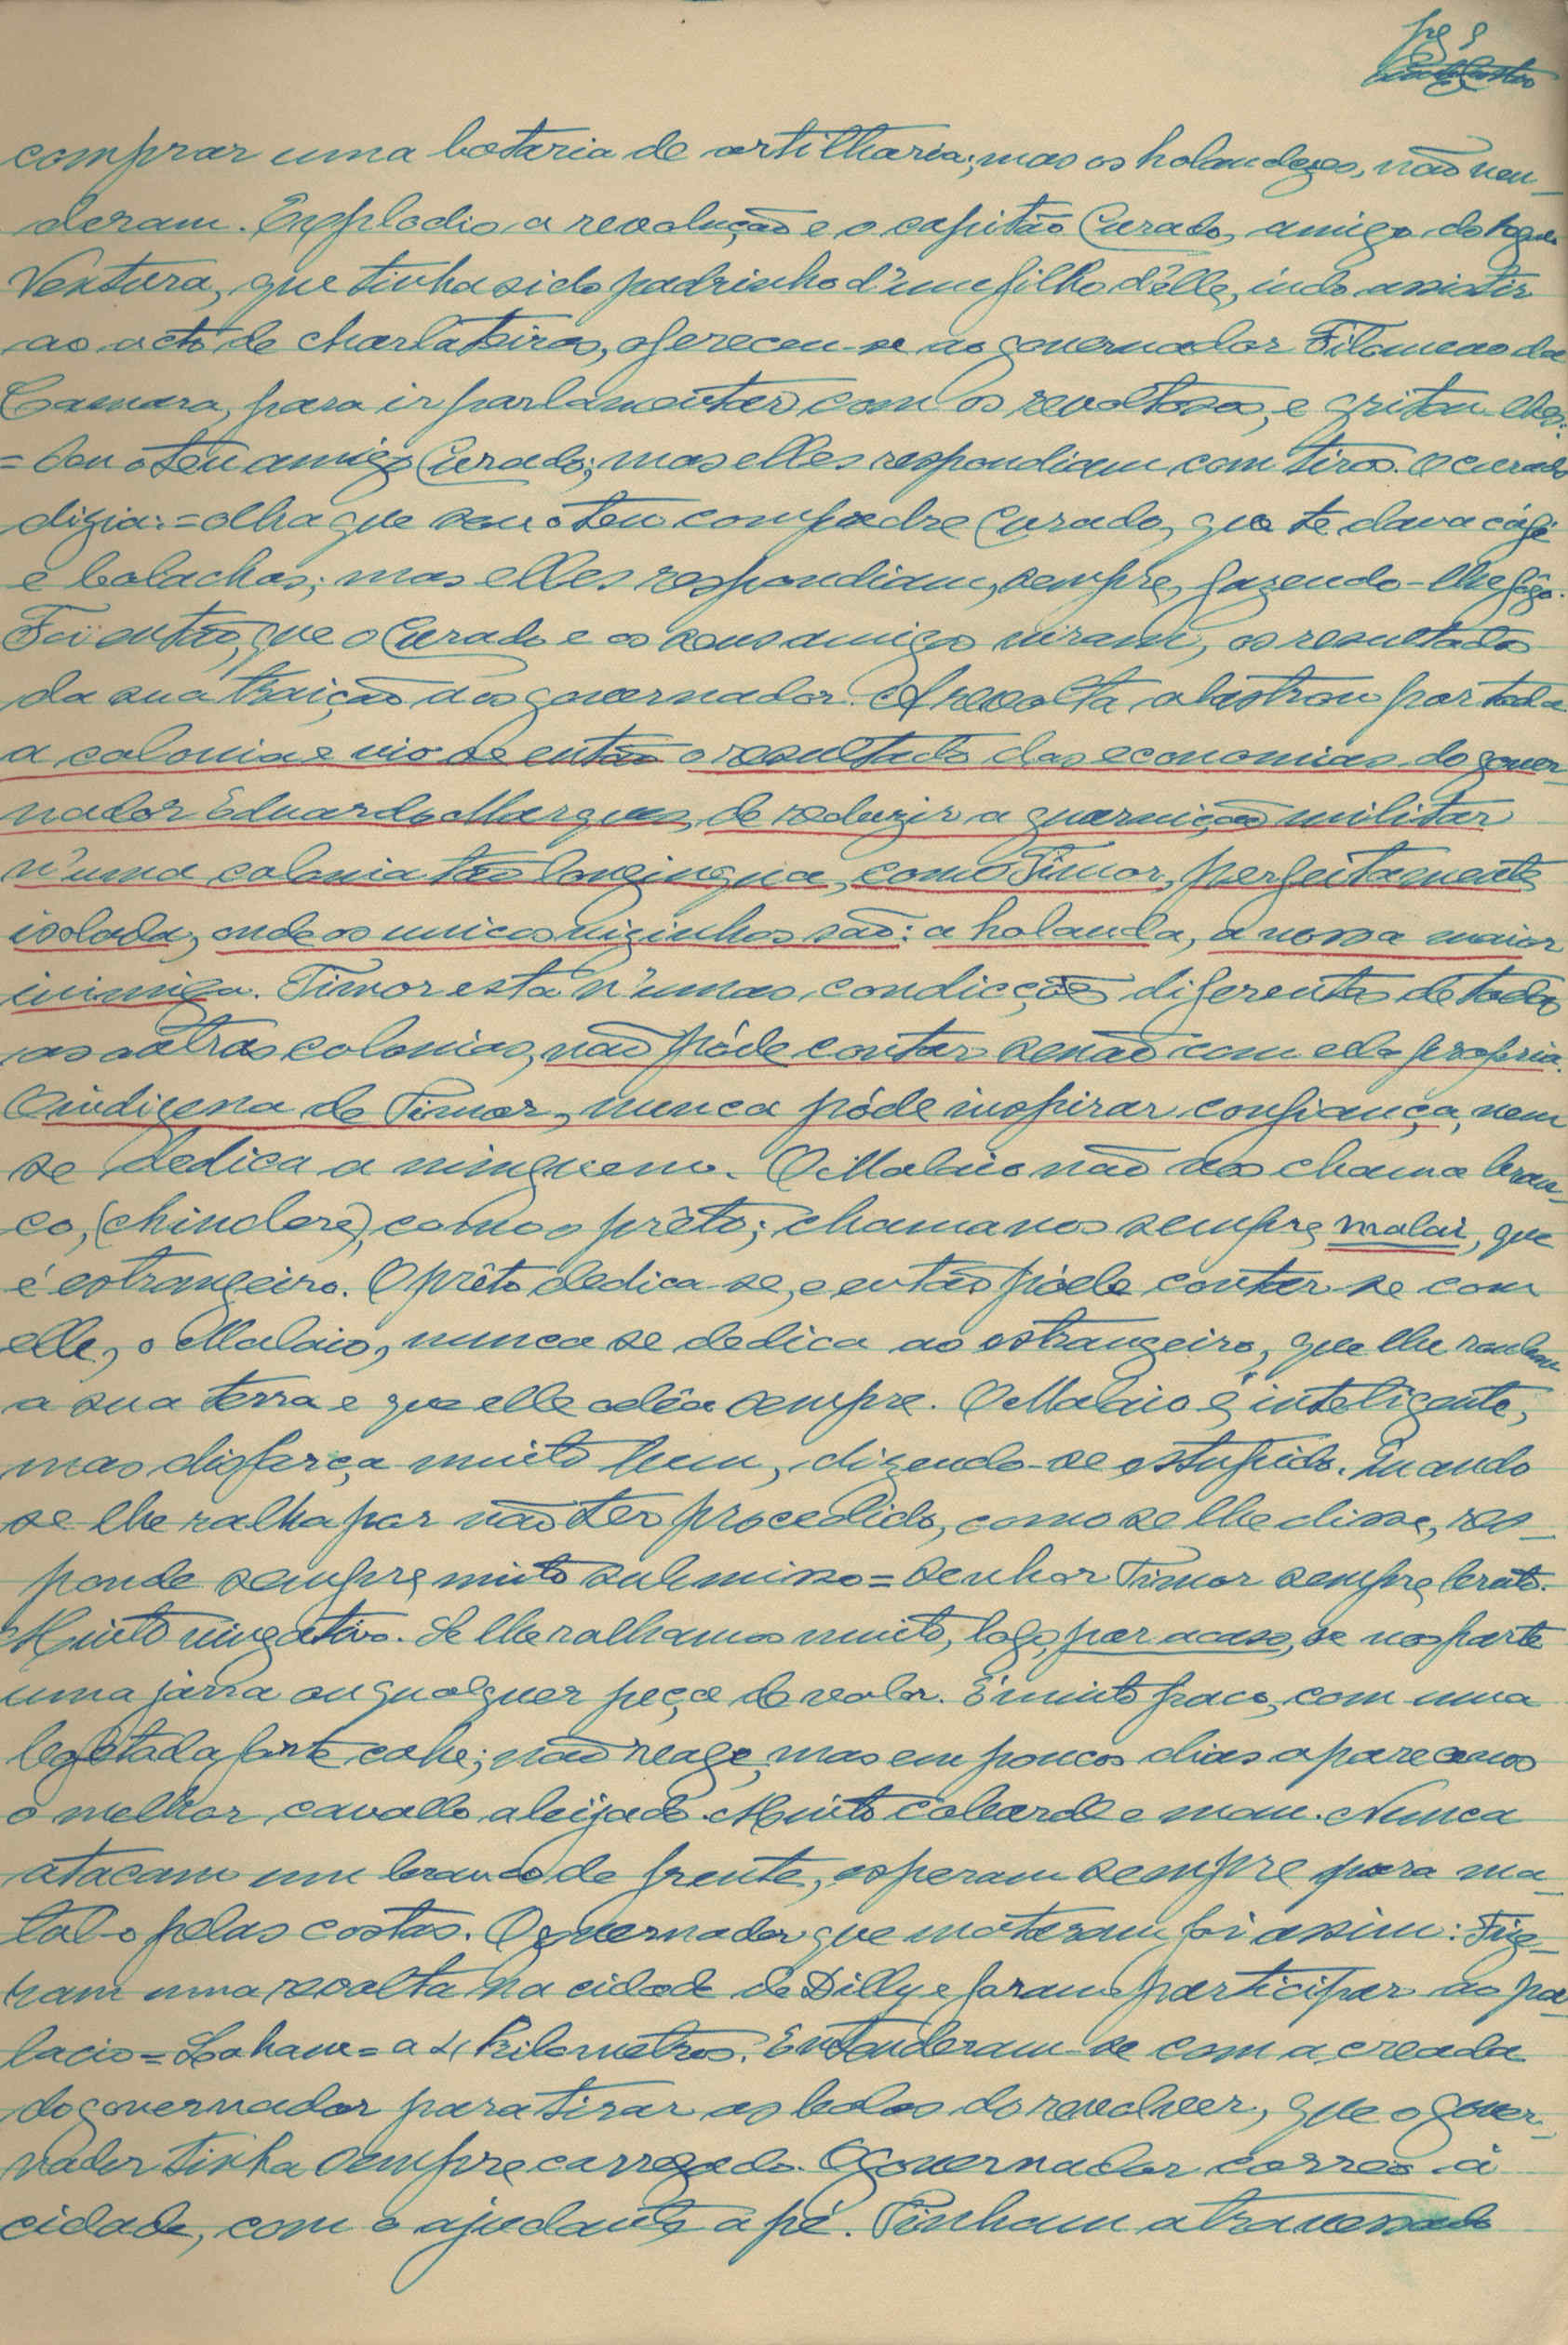 pg 9
comprar uma bataria de artilharia; mas os holandezes, não ven-
deram. Explodio a revolução e o capitão Curado, amigo do regulo
Ventura, que tinha sido padrinho d'um filho d'êlle, indo assistir
ao acto de charlateiras, ofereceu-se ao governador Filomeno da
Camara, para ir parlamentar com os revoltosos, e gritou-lhes:
= Sou o teu amigo Curado; mas elles respondiam com tiros. O Curado
dizia: = olha que sou o teu compadre Curado, que te dava cáfé
e bolachas; mas elles respondiam, sempre, fazendo-lhe fôgo.
Foi então, que o Curado e os seus amigos viram, os resultados
da sua traição aos governador. A revolta alastrou por toda
a colonia e vio-se então o resultado das economias do gover-
nador Eduardo Marques, de reduzir a guarnição militar
n'uma colonia tão longinqua, como Timor, perfeitamente
isolada, onde os unicos vizinhos são: a holanda, a nossa maior
inimiga. Timor está n'umas condicções diferentes de todas
as outras colonias, não póde contar senão com ela propria.
O indigena de Timor, nunca póde inspirar confiança, nem
se dedica a ninguem. O Malaio não nos chama bran-
co, (chindere), como o prêto; chama nos sempre malai, que
é estrangeiro. O prêto dedica-se, e então póde contar-se com
elle, o Malaio, nunca se dedica ao estrangeiro, que lhe roubou
a sua terra e que elle odêia sempre. O Malaio é inteligente,
mas disfarça muito bem, dizendo-se estupido. Quando
se lhe ralha por não ter procedido, como se lhe disse, res-
ponde sempre muito submisso = Senhor Timor sempre bruto.
Muito vingativo. Se lhe ralhamos muito, logo, por acaso, se nos parte
uma jarra ou qualquer peça de valor. É muito fraco, com uma
bofetada forte cahe; não reage, mas em poucos dias aparece-nos
o melhor cavallo aleijado. Muito cobarde e mau. Nunca
atacam um branco de frente, esperam sempre para ma-
tal-o pelas costas. O governador que mataram foi assim: Fize-
ram uma revolta na cidade de Dilly e foram participar ao pa-
lacio = Lahane = a 4 kilometros. Entenderam-se com a creada
do governador para tirar as balas do revolver, que o gover-
nador tinha sempre carregado. O governador correo á
cidade, com o ajudante a pé. Tinham atravessado